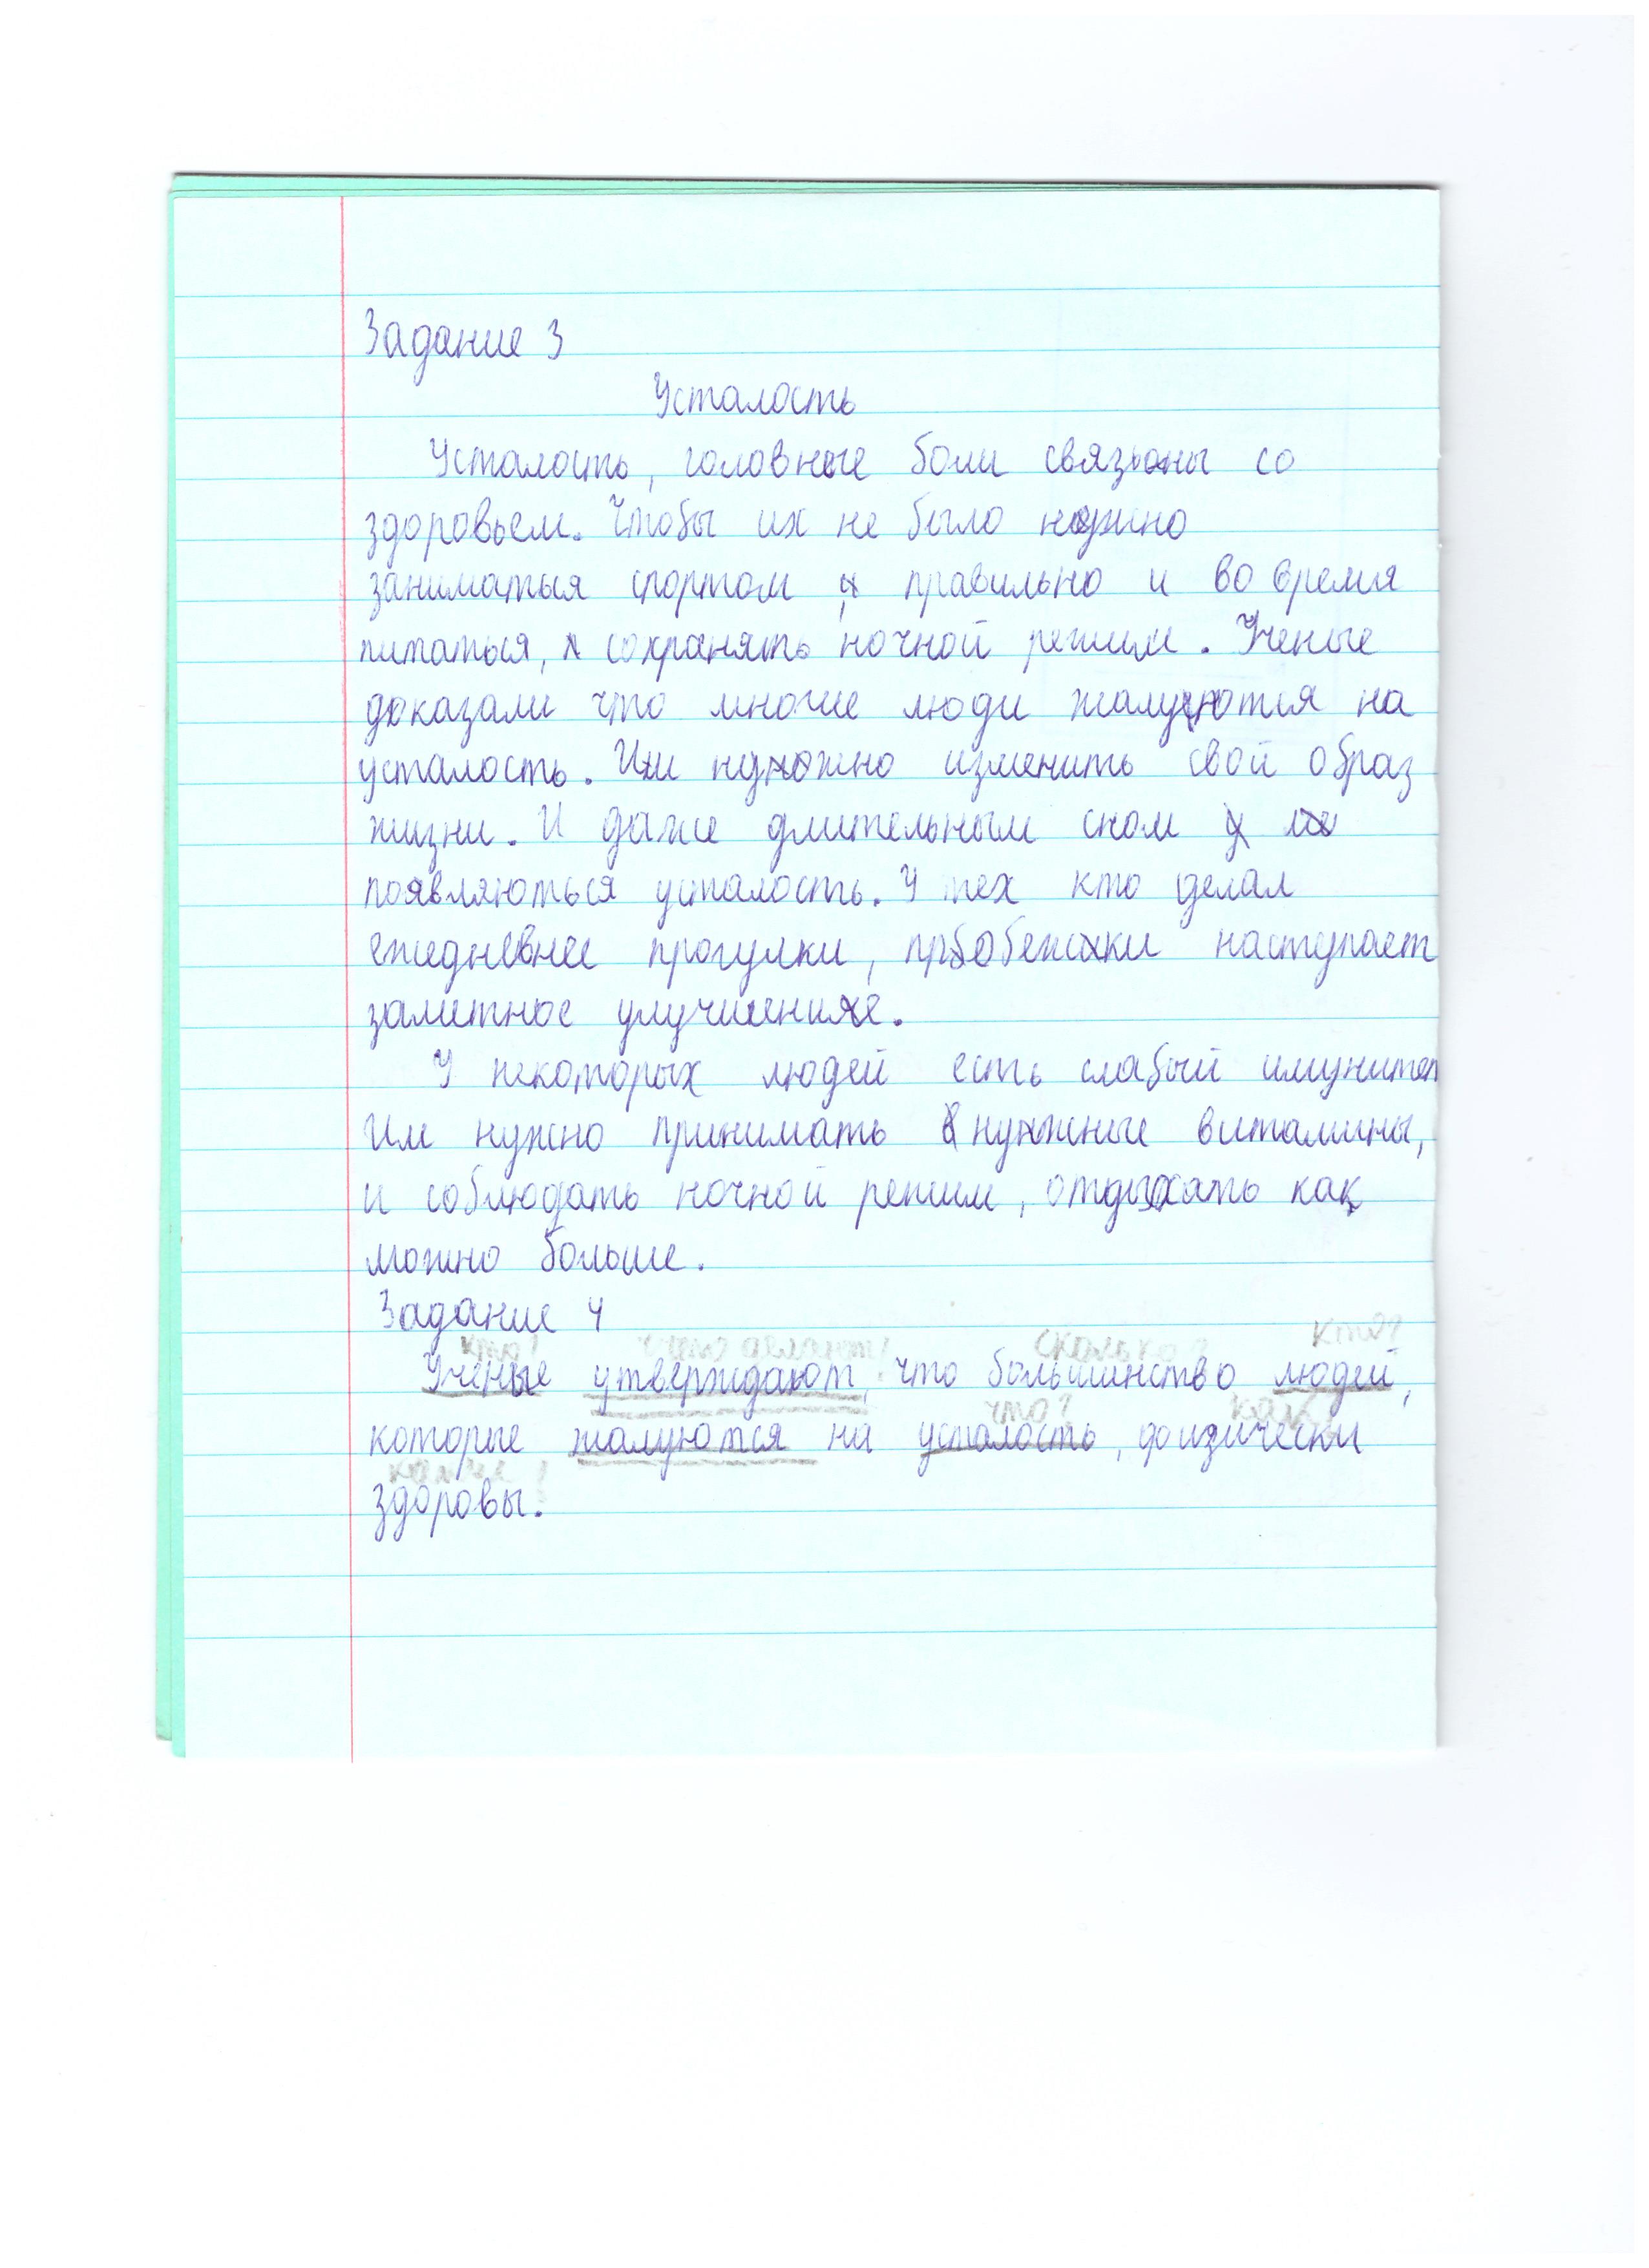 Задание 3
Усталость
Усталость, головные боли связаны со
здоровьем. Чтобы их не было нужно
заниматься спортом, правильно и во время
питаться, сохранять ночной режим. Ученые
доказали что многие люди жалуются на
усталость. Им нужно изменить свой образ
жизни. И даже длительным сном
появляються усталость. У тех кто делал
ежедневнее прогулки, пробежки наступает
заметное улучшение.
У некоторых людей есть слабый имунитет
Им нужно принимать нужные витамины,
и соблюдать ночной режим, отдыхать как
можно больше.
Задание 4
кто? что делают? сколько? кто?
Ученые утверждают, что большинство людей,
что? как
которые жалуются на усталость, физически
какие?
здоровы.